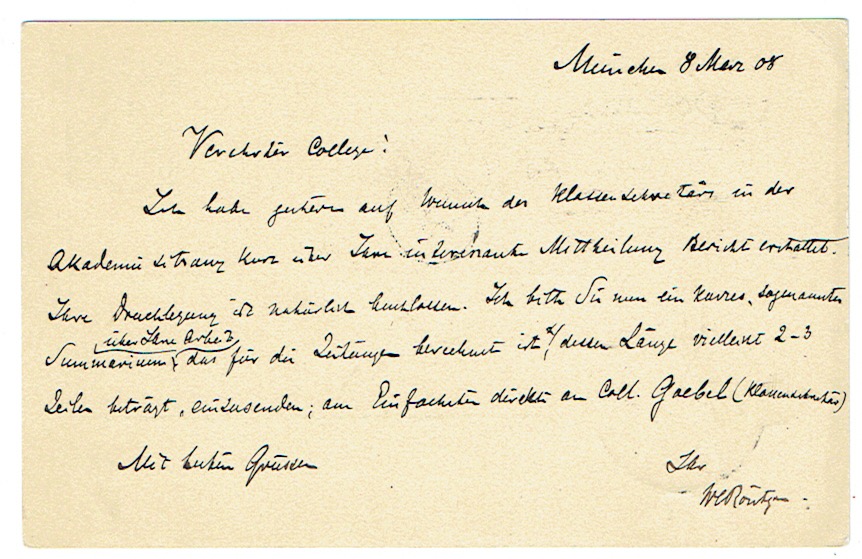 München 8 März 08
Verehrter College!
Ich habe gestern auf Wunsch des Klassensekretärs in der
Akademie Sitzung kurz über Ihre interessante Mittheilung Bericht erstattet.
Ihre Drucklegung ist natürlich beschlossen. Ich bitte Sie nun ein kurzes, sogenanntes
über Ihre Arbeit
Summarium, das für die Zeitungen berechnet ist, dessen Länge vielleicht 2-3
Zeilen beträgt, einzusenden; am Einfachsten direkt an Coll. Goebel (Klassensekretär)
Mit besten Grüssen
Ihr
WCRöntgen.